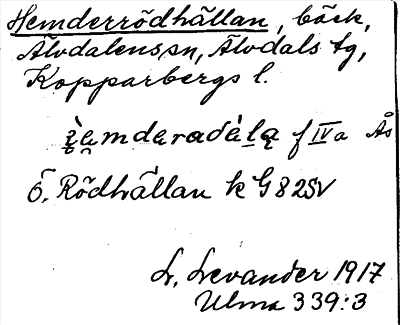 Hemderrödhällan, bäck,
Älvdalens sn, Älvdals tg,
Kopparbergs l.
f IVa Ås
Ö. Rödhällan k G 82SV
L. Levander 1917
Ulma 339:3